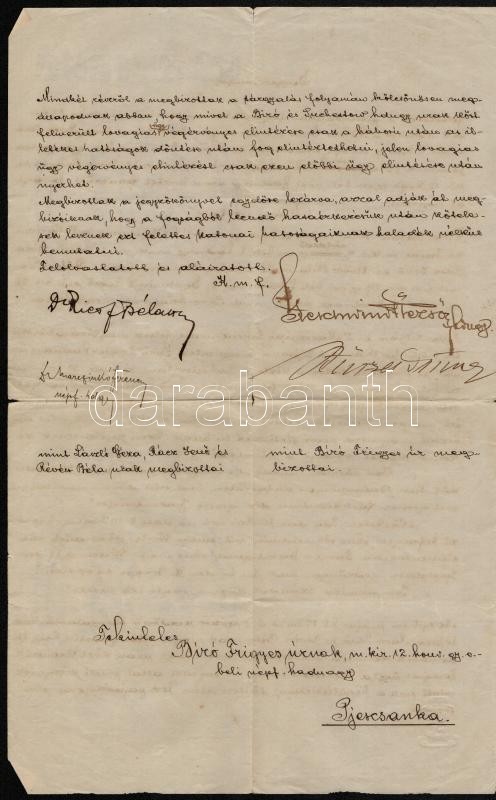 Mindkét részről a megbizottak a tárgyalás folyamán kölcsönösen meg-
állapodnak abban, hogy mivel a Biró és hadnagy urak közt
felmerült lovagias ügy végérvényes elintézése csak a háború után az il-
letékes hatóságok döntése után fog elintéztethetni, jelen lovagias
ügy végérvényes elintézést csak ezen előbbi ügy elintézése után
nyerhet.
Megbizottak a jegyzőkönyvet ezzel lezárva, azzal adják át meg-
bizóiknak, hogy a fogságból leendő hazaérkezésük után kötele-
sek lesznek ezt felettes katonai hatóságaiknak haladék nélkül
bemutatni.
Felolvastatott és aláiratott.
K. m. f.
Dr Béla
darabanth
népf.
mint László Géza, Rácz Jenő és
Révész Béla urak megbizottai
mint Biró Frigyes úr meg-
bizottai.
Tekintetes
Biró Frigyes úrnak, m. kir. 12. honv. gy. e-
beli népf. hadnagy
Pjescsanka.